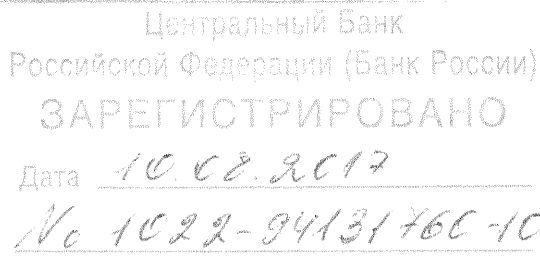 Центральный Банк
Российской Федерации (Банк России)
ЗАРЕГИСТРИРОВАНО
Дата 10.08.2017
№ 1022-94131760-10